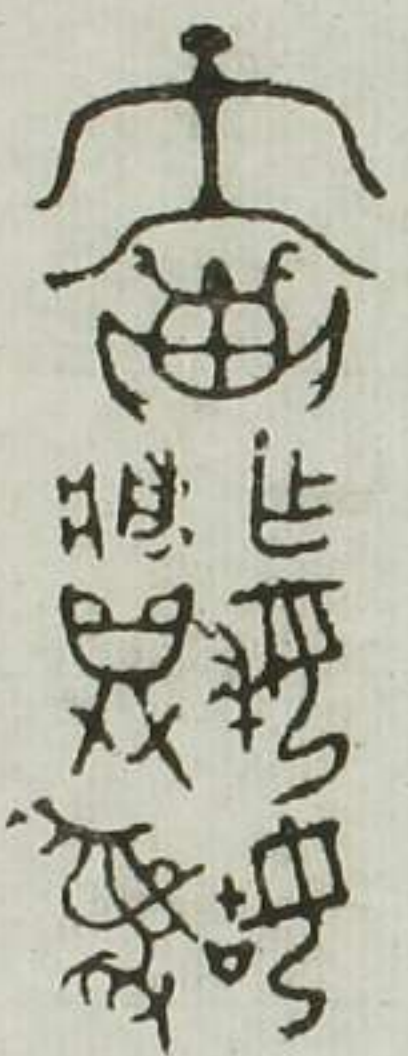 天黽
乍婦姑
䵼彝